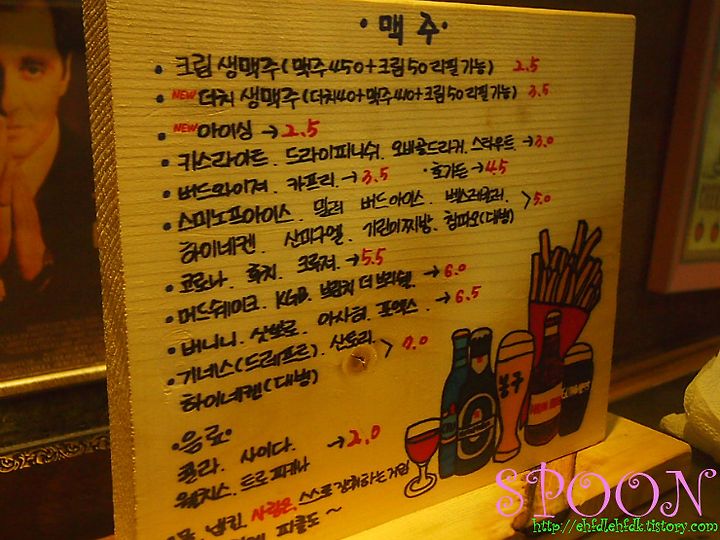 · 맥주 ·
· 크림 생맥주 (맥주 450 + 크림 50 리필 가능) 2.5
· NEW 더치 생맥주 (더치40+맥주 410+크림 50 리필 가능) 3.5
· NEW 아이싱 → 2.5
· 키스라이트. 드라이피니쉬. 오비골드라거. 스타우트. → 3.0
· 버드와이져. 카프리. → 3.5 · 호가든 → 4.5
· 스미노프아이스. 밀러 버드아이스. 벡스레몬러. > 5.0
하이네켄. 산미구엘. 기린이찌방. 칭따오(대병)
· 코로나. 후치. 크루져. → 5.5
· 머드쉐이크. KGB. 브람치 더 브리첼. → 6.0
· 버니니. 삿뽀로. 아사히. 포엑스. → 6.5
· 기네스(드래프트). 산토리. > 7.0
하이네켄(대병)
· 음료 ·
콜라. 사이다. → 2.0
웰치스. 트로피카나
냅킨. 사람은. 스스로 강취하는거임
피클도 ~
봉주
SPOON
http://ehfdlehfdk.tistory.com